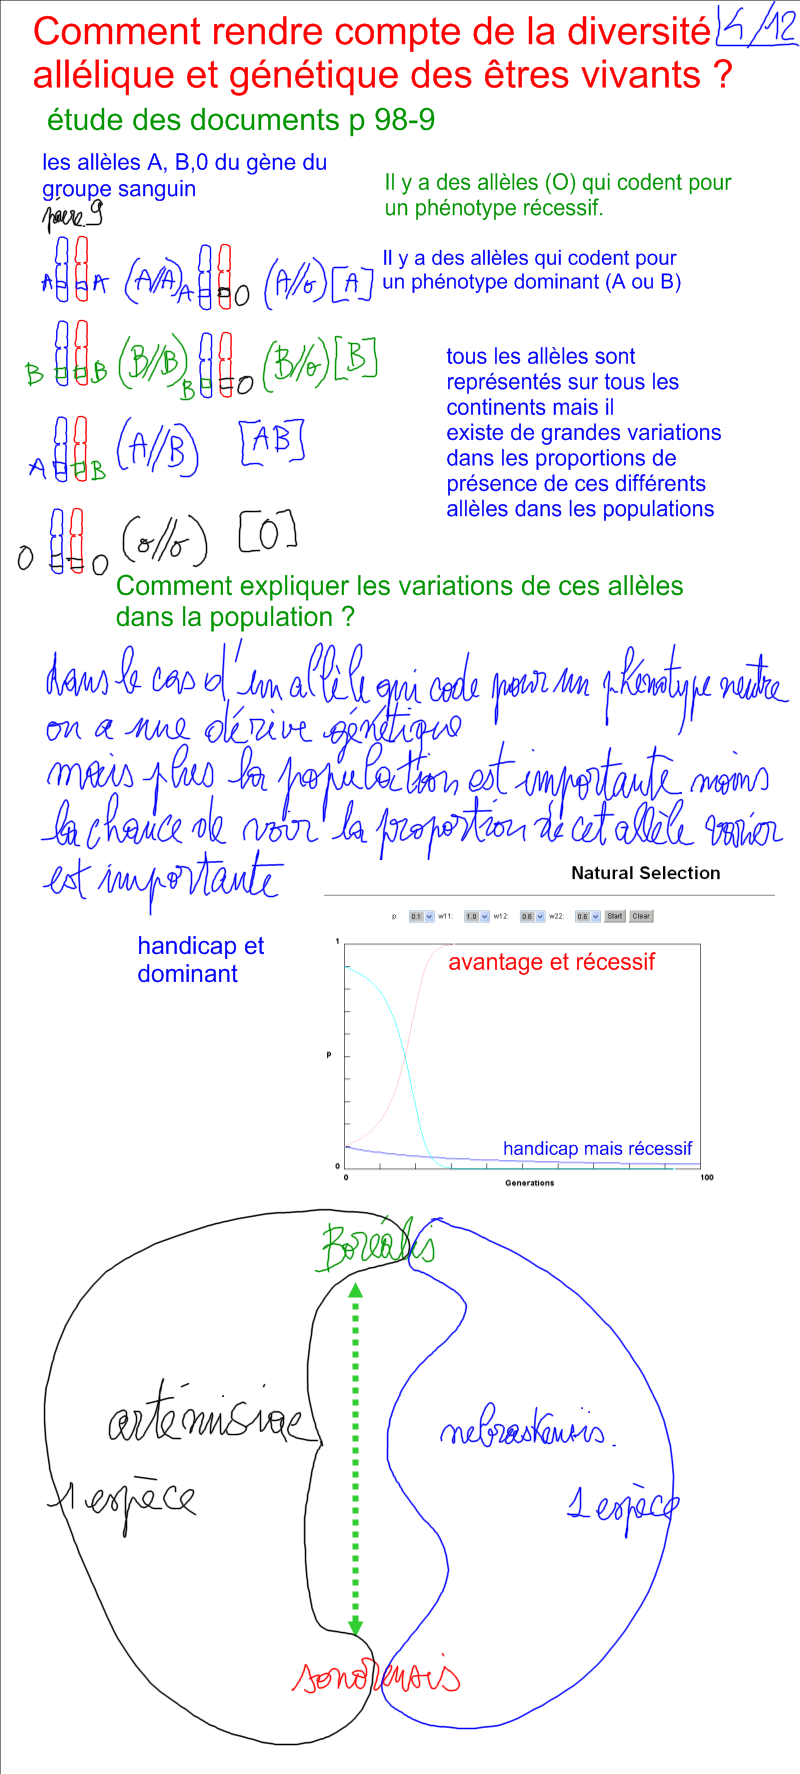 Comment rendre compte de la diversité 4/12
allélique et génétique des êtres vivants ?
étude des documents p 98-9
les allèles A, B,0 du gène du
groupe sanguin
paire 9
Il y a des allèles (O) qui codent pour
un phénotype récessif.
A A (A//A) A O (A//o) [A]
Il y a des allèles qui codent pour
un phénotype dominant (A ou B)
B B (B//B) B O (B//o) [B]
tous les allèles sont
représentés sur tous les
continents mais il
existe de grandes variations
dans les proportions de
présence de ces différents
allèles dans les populations
A B (A//B) [AB]
O O (o//o) [O]
Comment expliquer les variations de ces allèles
dans la population ?
dans le cas d'un allèle qui code pour un phénotype neutre
on a une dérive génétique
mais plus la population est importante moins
la chance de voir la proportion de cet allèle varier
est importante
Natural Selection
p: 0.1 w11: 1.0 w12: 0.6 w22: 0.6 Start Clear
handicap et
dominant
1
avantage et récessif
p
handicap mais récessif
0
0 100
Generations
Boréalis
artémisiae
nebraskensis.
1 espèce
1 espèce
sonorensis